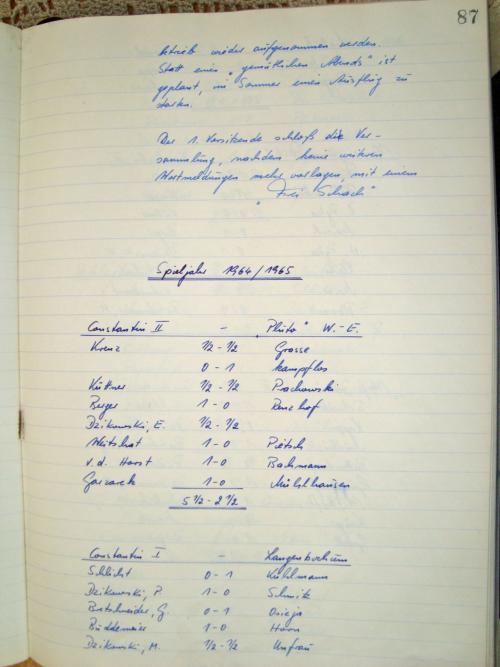 87
betrieb wieder aufgenommen werden.
Statt eines "gemütlichen Abends" ist
geplant, im Sommer einen Ausflug zu
starten.
Der 1. Vorsitzende schloß die Ver-
sammlung, nachdem keine weiteren
Wortmeldungen mehr vorlagen, mit einem
"Frei Schach"
Spieljahr 1964/1965
Constantin II - "Pluto" W.-E.
Krenz 1/2 - 1/2 Grosse
0 - 1 kampflos
Küttner 1/2 - 1/2 Prochowski
Berger 1 - 0
Dzikowski, E. 1/2 - 1/2
1 - 0 Pietsch
v.d. Horst 1 - 0 Bachmann
Gaszarek 1 - 0 Mühlhausen
5 1/2 - 2 1/2
Constantin I - Langenbochum
Schlicht 0 - 1 Kühlmann
Dzikowski, P. 1 - 0 Schmitz
Butschneider, G. 0 - 1
Büddemeier 1 - 0 Horn
Dzikowski, M. 1/2 - 1/2 Unfrau